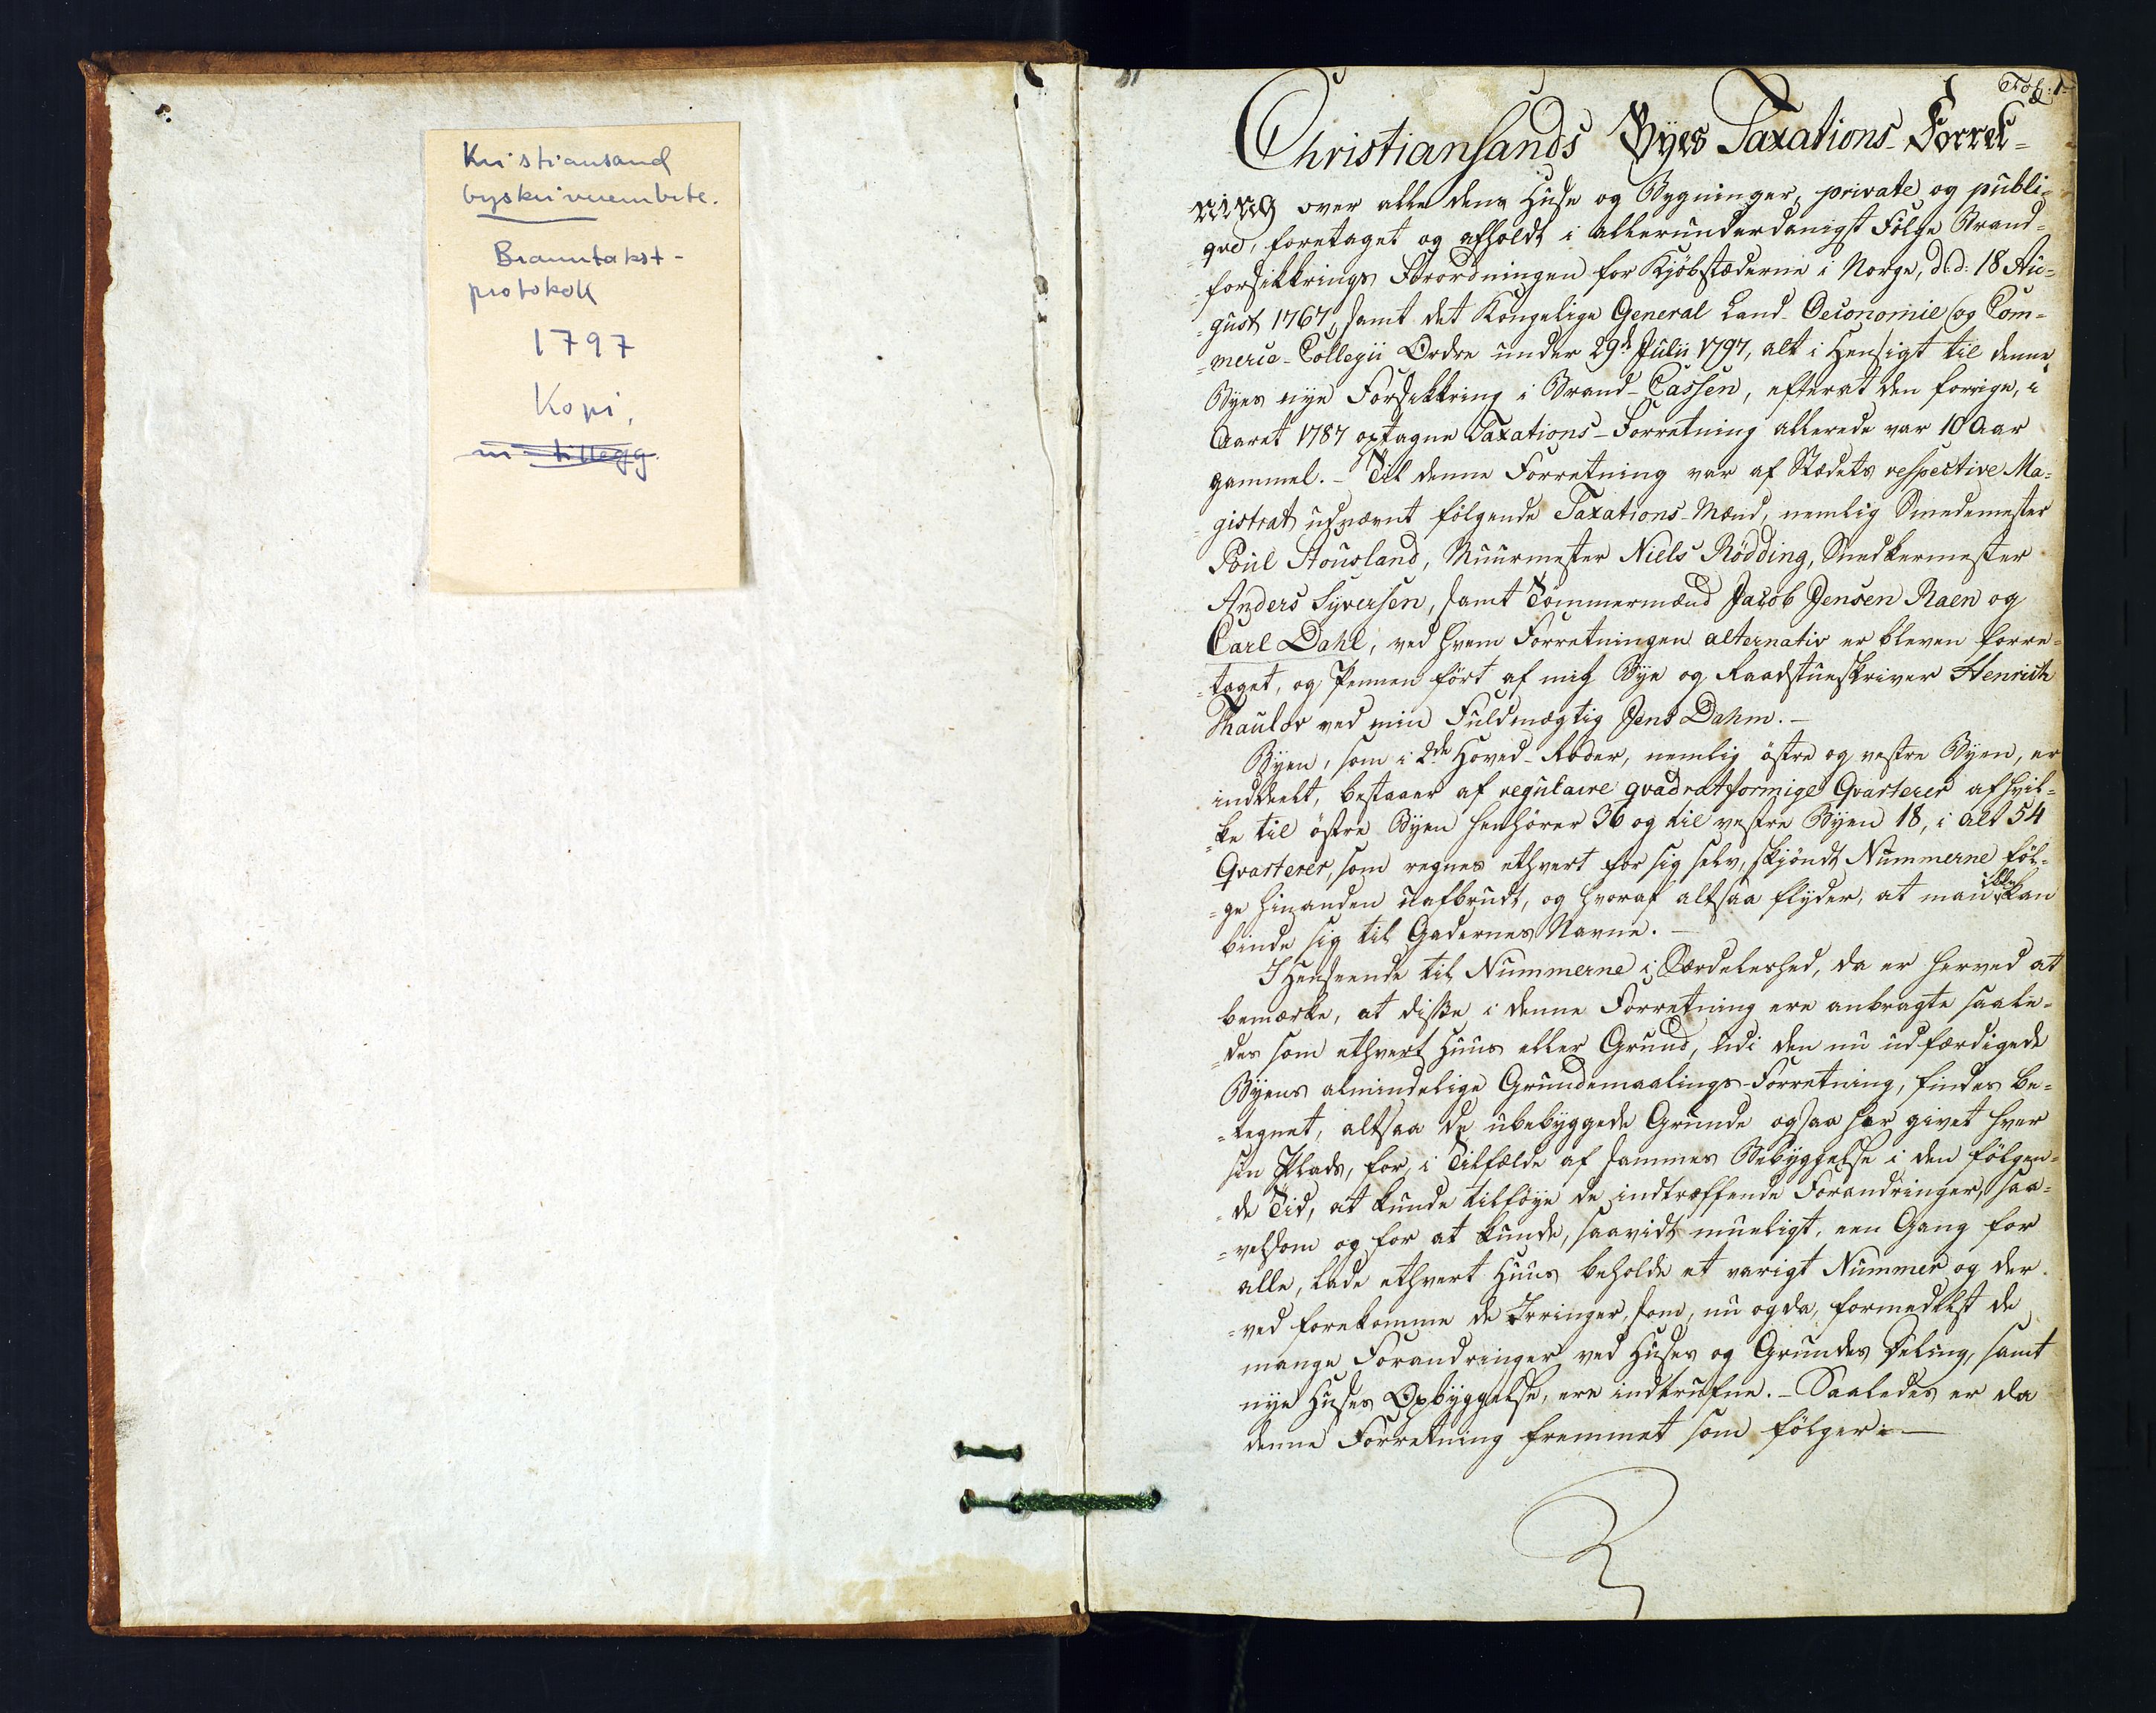 Kristiansand
byskriverembete.
Branntakst-
protokoll
1797
Kopi,
m tillegg.
Fol: 1
Christiansands Byes Taxations-Forret=
ning over alle dens Huse og Bygninger, private og publi=
=qve, foretaget og afholdt i allerunderdanigst Følge Brand=
=forsikkrings Forordningen for Kjøbstæderne i Norge, d:d: 18 Au=
=gust 1767, samt det Kongelige General Land-Oeconomie og Com=
=merce-Collegii Ordre under 29de Julii 1797, alt i Hensigt til denne
Byes nye Forsikkring i Brand-Cassen, efterat den forrige, i
Aaret 1787 optagne Taxations-Forretning allerede var 10 Aar
gammel.- Til denne Forretning var af Stædets respective Ma=
=gistrat udnævnt følgende Taxations-Mænd, nemlig Smedemester
Poul Stousland, Muurmester Niels Rödding, Snedkermester
Anders Syversen, samt Tömmermænd Jacob Jensen Raen og
Carl Dahl, ved hvem Forretningen alternativ er bleven forre=
=taget, og Pennen ført af mig Bye og Raadstueskriver Henrich
Thaulov ved min Fuldmægtig Jens Dahm.-
Byen, som i 2de Hoved-Roder, nemlig östre og vestre Byen, er
inddeelt, bestaaer af regulaire qvadratformige Qvarterer af hvil=
=ke til östre Byen henhører 36 og til vestre Byen 18, i alt 54
Qvarterer, som regnes ethvert for sig selv, skjöndt Nummerne föl=
=ge hinanden uafbrudt, og hvoraf altsaa flyder, at man ikke kan
binde sig til Gadernes Navne.-
I Henseende til Nummerne i Særdeleshed, da er herved at
bemærke, at disse i denne Forretning ere anbragte saale=
=des som ethvert Huus eller Grund, udi den nu udfærdigede
Byens almindelige Grundemaalings-Forretning, findes be=
=tegnet, altsaa de ubebyggede Grunde ogsaa her givet hver
sin Plads, for, i Tilfælde af sammes Bebyggelse i den følgen=
=de Tid, at kunde tilföye de indtræffende Forandringer, saa=
=velsom og for at kunde, saavidt mueligt, een Gang for
alle, lade ethvert Huus beholde et varigt Nummer og der
=ved forekomme de Irringer, som, nu og da, formedelst de
mange Forandringer ved Huses og Grundes Deling, samt
nye Huses Opbyggelse, ere indtrufne.- Saaledes er da
denne Forretning fremmet som følger:-